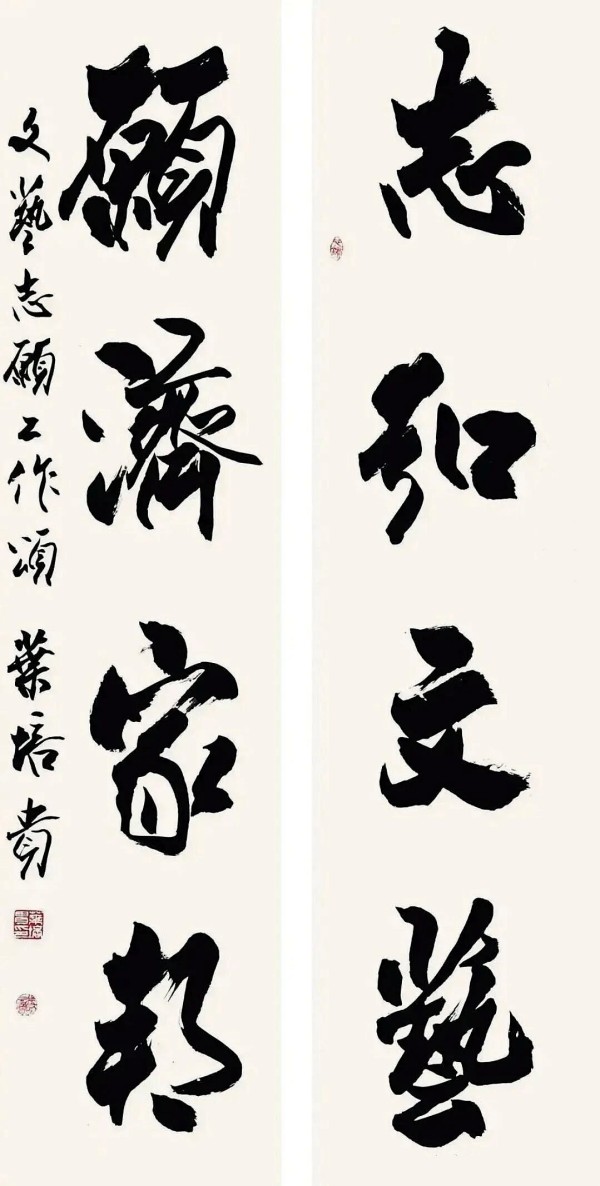 志弘文藝
願濟家邦
文藝志願工作頌 葉培貴